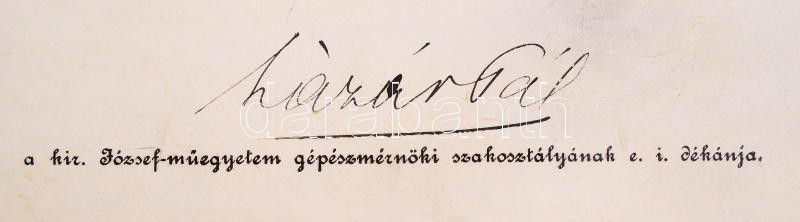 Lázár Pál
darabanth
a kir. József-műegyetem gépészmérnöki szakosztályának e. i. dékánja.